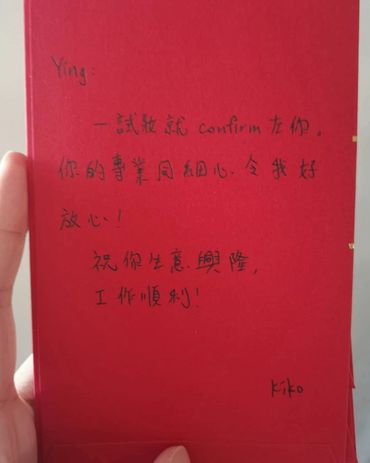 Ying:
一試妝就 confirm 左你。
你的專業同細心、令我好
放心!
祝你生意興隆,
工作順利!
Kiko